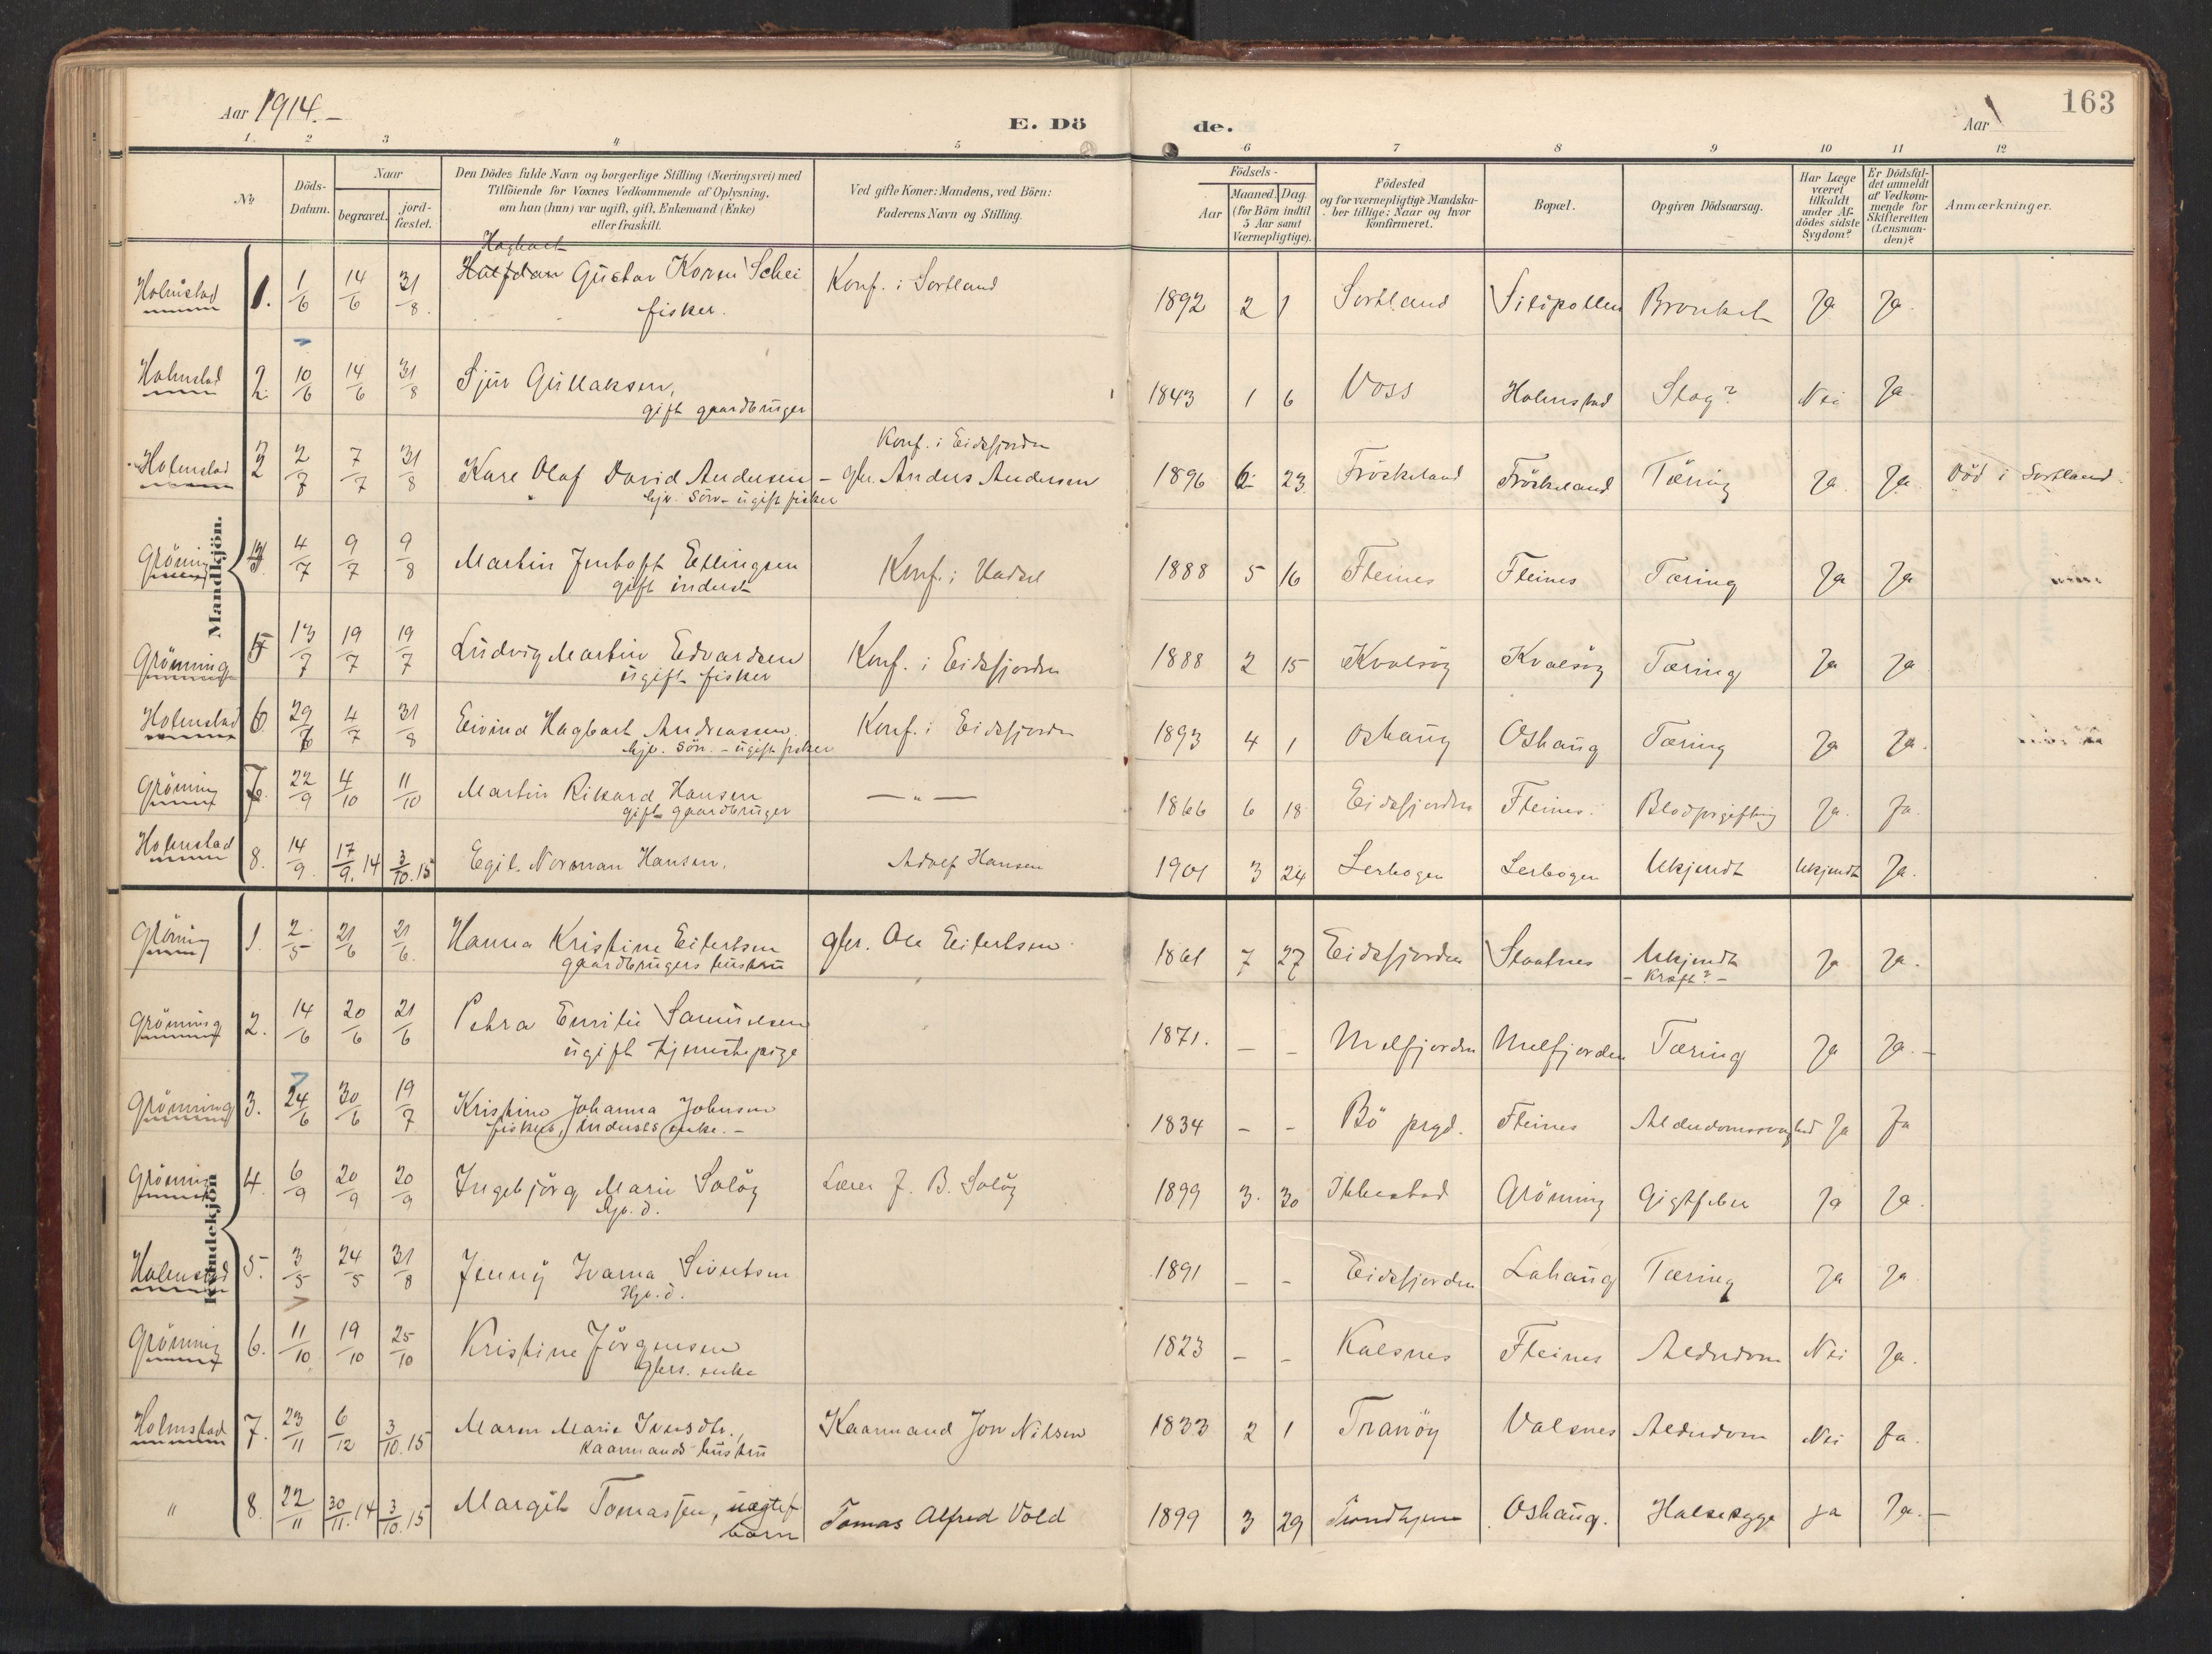 Aar 1914.-
E. Döde.
Aar
163
1. 2 3 4 5 6 7 8 9 10 11 12
No
Döds-Datum.
Naar
begravet.
jordfæstet.
Den Dödes fulde Navn og borgerlige Stilling (Næringsvei) med
Tilföiende for Voxnes Vedkommende af Oplysning,
om han (hun) var ugift, gift, Enkemand (Enke)
eller fraskilt.
Ved gifte Koner: Mandens, ved Börn:
Faderens Navn og Stilling.
Födsels-
Aar
Maaned. Dag.
(for Börn indtil
5 Aar samt
Værnepligtige).
Födested
og for værnepligtige Mandska-
ber tillige: Naar og hvor
konfirmeret.
Bopæl.
Opgiven Dödsaarsag.
Har Læge
været
tilkaldt
under Af-
dödes sidste
Sygdom?
Er Dödsfal-
det anmeldt
af Vedkom-
mende for
Skifteretten
(Lensman-
den)?
Anmærkninger.
Mandkjön.
Hagbart
Holmstad 1. 1/6 14/6 31/8. Halfdan Gustav Schei Konf. i Sortland 1892 2 1 Sortland Bronkit Ja Ja.
fisker.
Holmstad 2. 10/6 14/6 31/8 Sjur Gullaksen, 1843 1 6 Voss Holmstad Slag? Nei Ja
gift gaardbruger
Konf. i Eidsfjorden
Holmstad 3 2/7 7/7 31/8 Kare Olaf David Andersen - gbr. Anders Andersen 1896 6 23 Fröskeland Fröskeland Tæring Ja Ja Död i Sortland.
hjv. Sön - ugift fisker
Gröning 4 4/7 9/7 9/8 Martin Jentoft Ellingsen Konf. i Hadsel 1888 5 16 Fleines Fleines Tæring Ja Ja
gift inderst
Grönning 5 13/7 19/7 19/7 Ludvig Martin Edvardsen Konf. i Eidsfjorden 1888 2 15 Kvalsöy Kvalsöy Tæring Ja Ja
ugift fisker
Holmstad 6 29/6 4/7 31/8 Eivind Hagbart Andreassen. Konf. i Eidsfjorden 1893 4 1 Oshaug Oshaug Tæring Ja Ja.
hjv. Sön. - ugift fisker
Gröning 7. 22/9 4/10 11/10 Martin Rikard Hansen — " — 1866 6 18 Eidsfjorden Fleines. Blodforgiftning Ja Ja.
gift gaardbruger
Holmstad 8. 14/9. 17/9.14 3/10.15 Egil Norman Hansen. Adolf Hansen 1901 3 24 Lerbogen Lerbogen Ukjendt Ukjendt Ja.
Kvindekjön
Gröning 1. 2/5 21/6 21/6. Hanna Kristine Eilertsen gbr. Ole Eilertsen 1861 7 27 Eidsfjorden Slaatnes Ukjendt Ja Ja.
gaardbrugers hustru - Kræft? -
Gröning 2. 14/6 20/6 21/6 Petra Emilie Samuelsen 1871. - - Melfjorden Melfjorden Tæring Ja Ja.-
ugift tjenestepige
Grönning 3. 24/6 30/6 19/7 Kristine Johanna Johnsen 1834 - - Bö prgd. Fleines Alderdomssvaghed Ja Ja
fisker, inderst enke. -
Gröning 4. 6/9 20/9 20/9 Ingebjörg Marie Solöy Lærer J. B. Solöy 1899 3. 30 Ibbestad Gröning Gigtfeber Ja Ja.
hjv. d.
Holmstad 5. 3/5 24/5 31/8 Jenny Ivarna Sivertsen 1891 - - Eidsfjorden Lahaug Tæring Ja Ja.
Hjv. d.
Gröning 6. 11/10 19/10 25/10 Kristine Jörgensen 1823 - - Kalsnes Fleines Alderdom Nei Ja.
gbrs. enke
Holmstad 7. 23/11 6/12 3/10.15 Maren Marie Iversdtr., Kaarmand Jon Nilsen 1833 2 1 Tranöy Valsnes Alderdom Nei Ja.
Kaarmands hustru
" 8. 22/11 30/11.14 3/10.15 Margit Tomassen, uægtef Tomas Alfred Vold 1899 3 29 Trondhjem Oshaug. Halsesyge Ja Ja.-
barn